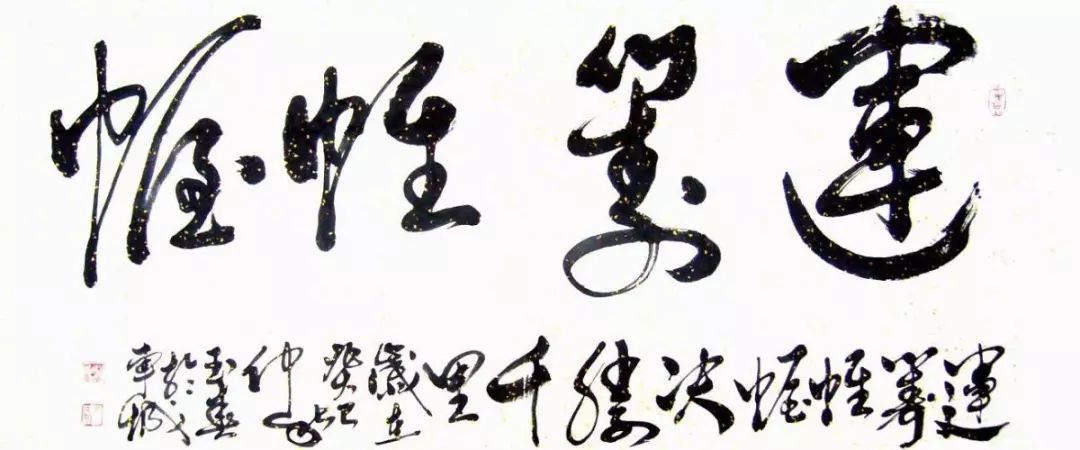 運籌帷幄
運籌帷幄决勝千里
歲在
癸巳
仲
於